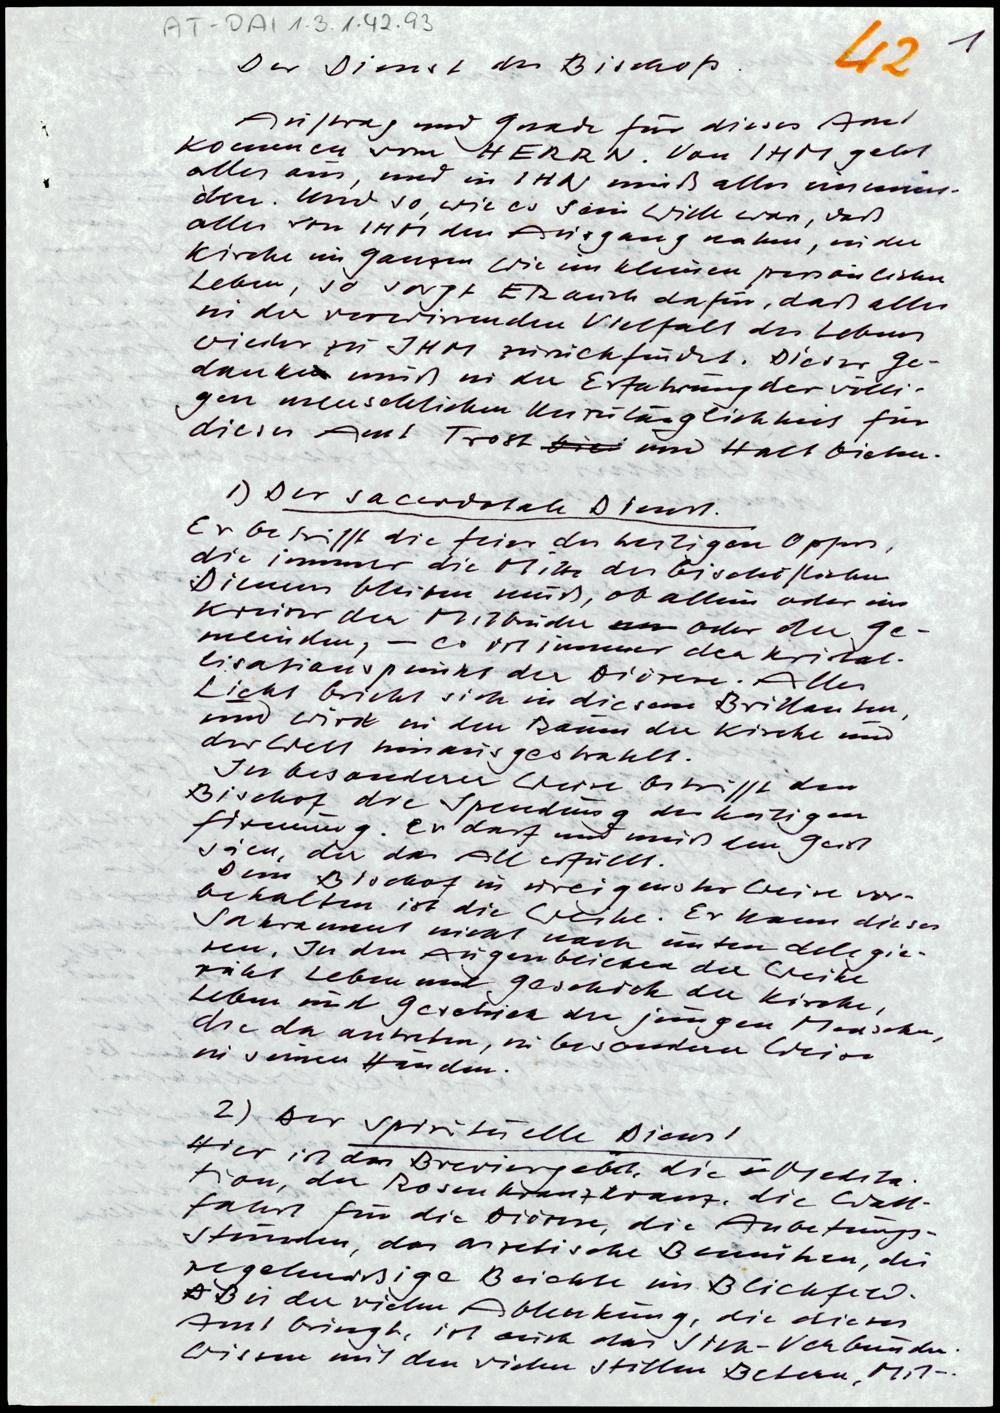 AT-DAI 1.3.1.42.93
42 1
Der Dienst des Bischofs.
Auftrag und Gnade für dieses Amt
kommen vom HERRN. Von IHM geht
alles aus, und in IHN muß alles einmün-
den. Und so, wie es Sein Wille war, daß
alles von IHM den Ausgang nahm, in der
Kirche im Ganzen wie im kleinen persönlichen
Leben, so sorgt ER auch dafür, daß alles
in der verwirrenden Vielfalt des Lebens
wieder zu IHM zurückfindet. Dieser Ge-
danke muß in der Erfahrung der völli-
gen menschlichen Unzulänglichkeit für
dieses Amt Trost und Halt bieten.
1) Der sacerdotale Dienst.
Er betrifft die Feier des heiligen Opfers,
die immer die Mitte des bischöflichen
Dienens bleiben muß, ob allein oder im
Kreise der Mitbrüder oder der Ge-
meinden, – es ist immer der Kristal-
lisationspunkt der Diözese. Alles
Licht bricht sich in diesem Brillanten,
und wird in den Raum der Kirche und
der Welt hinausgestrahlt.
In besonderer Weise betrifft den
Bischof die Spendung der heiligen
Firmung. Er darf und muß den Geist
säen, der das All erfüllt.
Dem Bischof in ureigenster Weise vor-
behalten ist die Weihe. Er kann dieses
Sakrament nicht nach unten delegie-
ren. In den Augenblicken der Weihe
ruht Leben und Geschick der Kirche,
Leben und Geschick der jungen Menschen,
die da antreten, in besonderer Weise
in seinen Händen.
2) Der spirituelle Dienst
Hier ist das Breviergebet, die Medita-
tion, der Rosenkranzkranz, die Wall-
fahrt für die Diözese, die Anbetungs-
stunden, das asketische Bemühen, die
regelmäßige Beichte im Blickfeld.
Bei der vielen Ablenkung, die dieses
Amt bringt, ist auch das Sich-Verbunden-
Wissen mit den vielen stillen Betern, Mit-